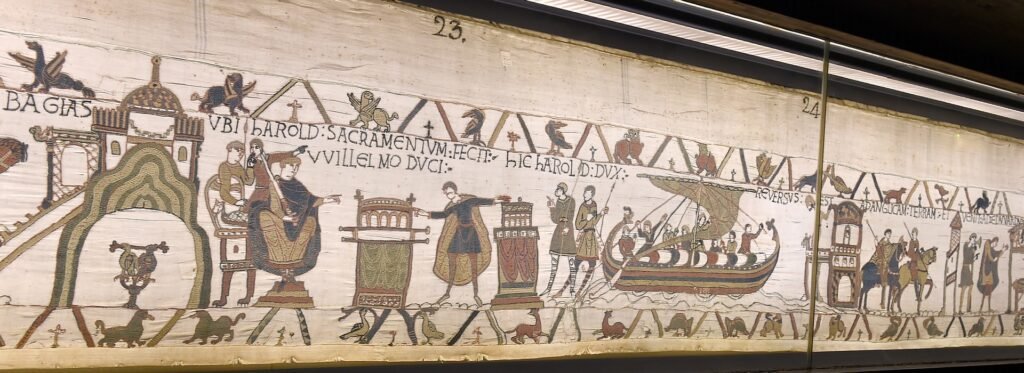 23.
24
BAGIAS
VBI hAROLD : SACRAMENTVM : FECIT :
VVILLELMO DVCI :
hIC hAROLD : DVX :
REVERSVS :
EST
ANGLICAM : TERRAM : ET
VENIT